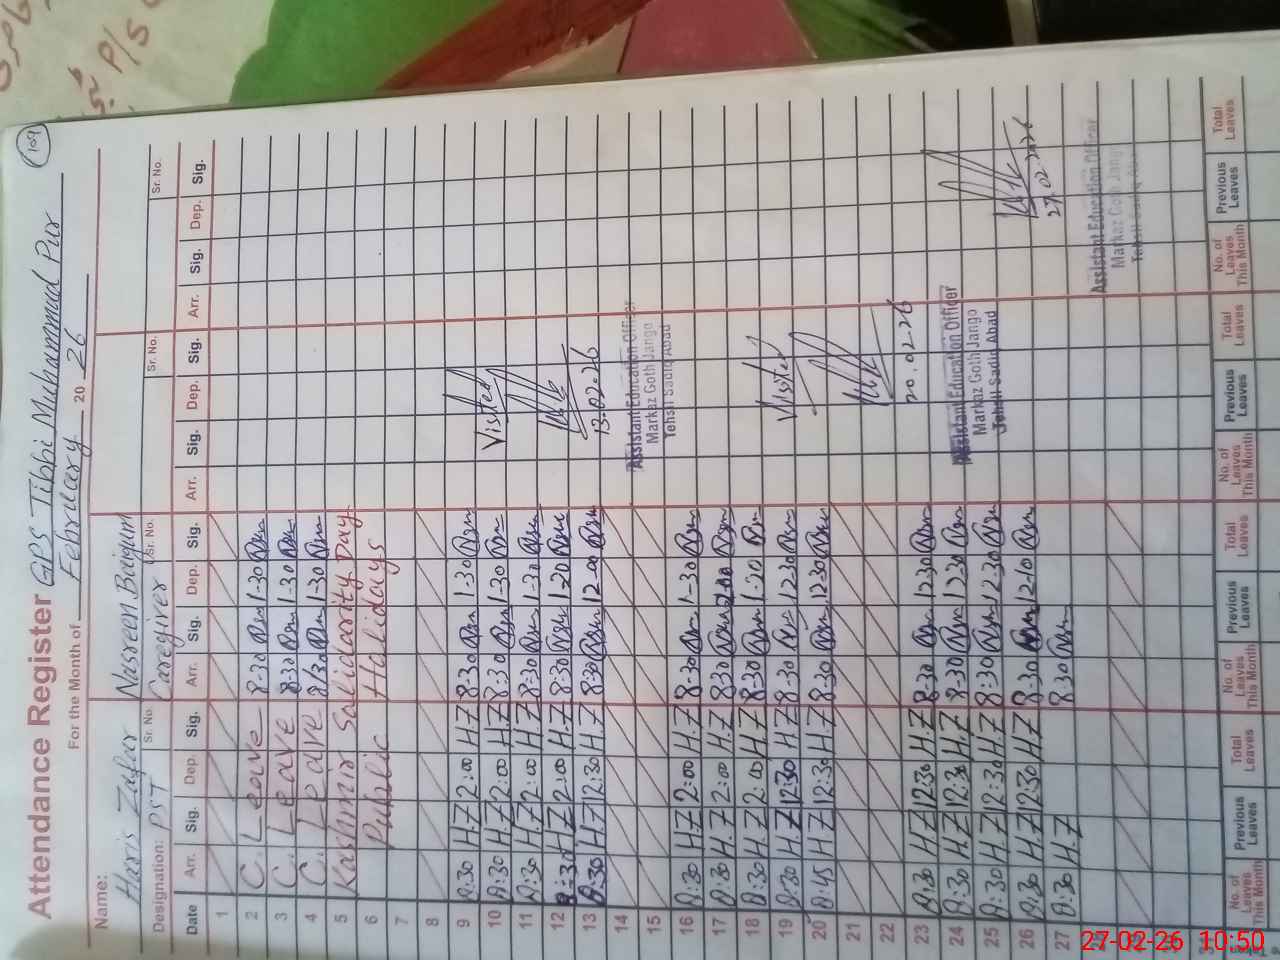 109
Attendance Register GPS Tibbi Muhammad Pur
For the Month of February 20 26
Name: Haris Zafar Nasreen Begum
Designation: PST Sr. No. Caregiver Sr. No. Sr. No. Sr. No.
Date Arr. Sig. Dep. Sig. Arr. Sig. Dep. Sig. Arr. Sig. Dep. Sig. Arr. Sig. Dep. Sig.
1
2 C. Leave 8-30 1-30
3 C. Leave 8-30 1-30
4 C. Leave 8-30 1-30
5 Kashmir Solidarity Day
6 Public Holidays
7
8
9 8:30 H.Z 2:00 H.Z 8-30 1-30
10 8:30 H.Z 2:00 H.Z 8-30 1-30
11 8:30 H.Z 2:00 H.Z 8-30 1-30
12 8:30 H.Z 2:00 H.Z 8-30
13 8:30 H.Z 12:30 H.Z 8-30 12-00
14
15
16 8:30 H.Z 2:00 H.Z 8-30 1-30
17 8:30 H.Z 2:00 H.Z 8-30
18 8:30 H.Z 2:00 H.Z 8-30
19 8:30 H.Z 12:30 H.Z 8-30 12-30
20 8:45 H.Z 12:30 H.Z 8-30 12-30
21
22
23 8:30 H.Z 12:30 H.Z 8-30 12-30
24 8:30 H.Z 12:30 H.Z 8-30 12-30
25 8:30 H.Z 12:30 H.Z 8:30 12-30
26 8:30 H.Z 12:30 H.Z 8-30 12-10
27 8:30 H.Z 8-30
Visited
13-02-26
Assistant Education Officer
Markaz Goth Jango
Tehsil Sadiq Abad
Visited
20.02-26
Assistant Education Officer
Markaz Goth Jango
Tehsil Sadiq Abad
27.02.2026
Assistant Education Officer
Markaz Goth Jango
Tehsil Sadiq Abad
No. of Leaves This Month Previous Leaves Total Leaves No. of Leaves This Month Previous Leaves Total Leaves No. of Leaves This Month Previous Leaves Total Leaves No. of Leaves This Month Previous Leaves Total Leaves
P/S
27-02-26 10:50